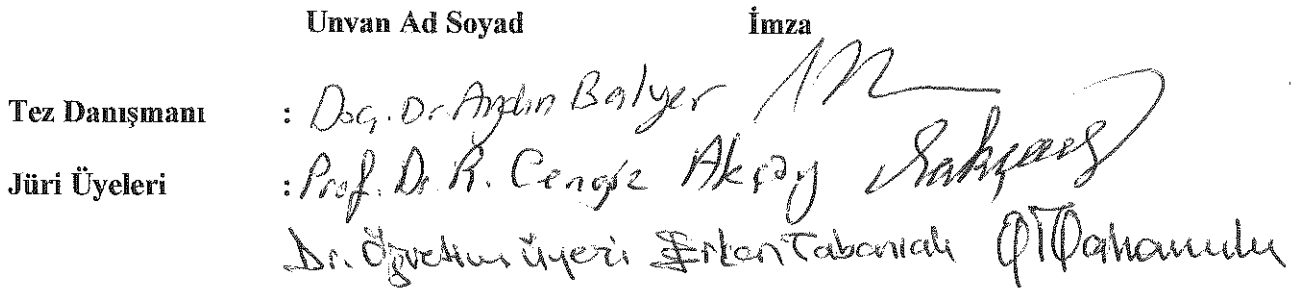 Unvan Ad Soyad İmza
Tez Danışmanı : Doç. Dr. Aydın Balyer
Jüri Üyeleri : Prof. Dr. R. Cengiz Akçay
Dr. Öğretim Üyesi Erkan Tabancalı